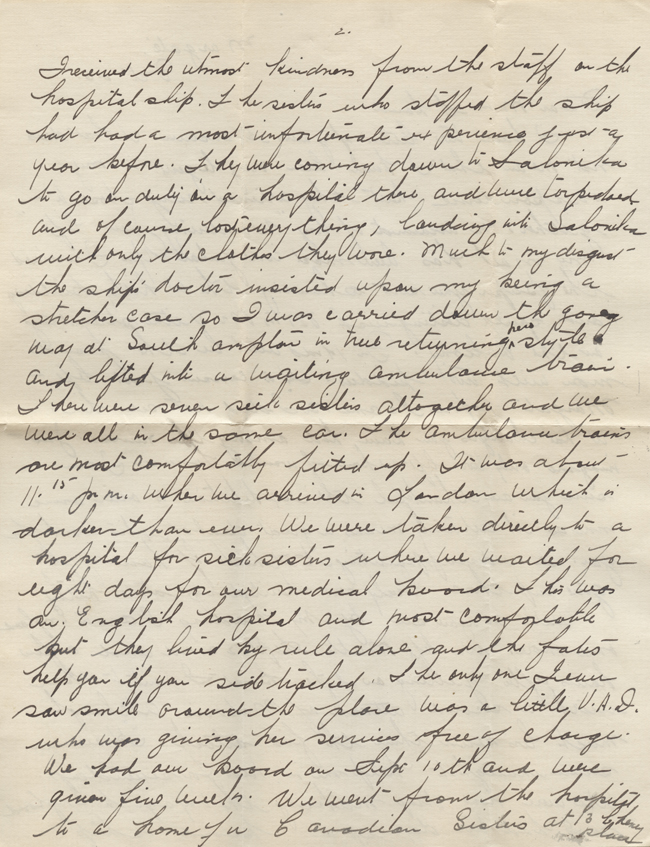 2.
I received the utmost kindness from the staff on the
hospital ship. The sisters who staffed the ship
had had a most unfortunate experience just a
year before. They were coming down to Salonika
to go on duty in a hospital there and were torpedoed
and of course lost everything, landing into Salonika
with only the clothes they wore. Much to my disgust
the ship's doctor insisted upon my being a
stretcher case so I was carried down the gang
way at Southampton in true returning hero style
and lifted into a waiting ambulance train.
There were seven sick sisters altogether and we
were all in the same car. The ambulance trains
are most comfortably fitted up. It was about
11.15 p.m. when we arrived in London which is
darker than ever. We were taken directly to a
hospital for sick sisters where we waited for
eight days for our medical board. This was
an English hospital and most comfortable
but they lived by rule alone and the fates
help you if you side tracked. The only one I ever
saw smile around the place was a little V.A.D.
who was giving her services free of charge.
We had our board on Sept 10th and were
given five weeks. We went from the hospital
to a home for Canadian Sisters at 13
place